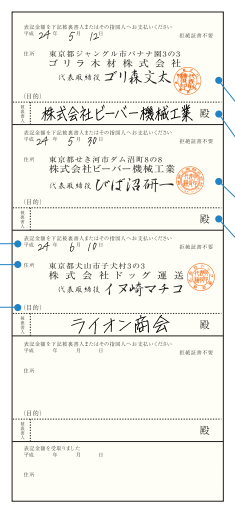 表記金額を下記被裏書人またはその指図人へお支払いください
平成 24 年 5 月 12 日 拒絶証書不要
住所 東京都ジャングル市バナナ園3の3
ゴリラ木材株式会社
代表取締役 ゴリ森文太
(目的)
被裏書人 株式会社ビーバー機械工業 殿
表記金額を下記被裏書人またはその指図人へお支払いください
平成 24 年 5 月 30 日 拒絶証書不要
住所 東京都せき河市ダム沼町8の8
株式会社ビーバー機械工業
代表取締役 びば沼研一
(目的)
被裏書人 殿
表記金額を下記被裏書人またはその指図人へお支払いください
平成 24 年 6 月 10 日 拒絶証書不要
住所 東京都犬山市子犬村3の3
株式会社ドッグ運送
代表取締役 イヌ崎マチコ
(目的)
被裏書人 ライオン商会 殿
表記金額を下記被裏書人またはその指図人へお支払いください
平成 年 月 日 拒絶証書不要
住所
(目的)
被裏書人 殿
表記金額を受取りました
平成 年 月 日
住所